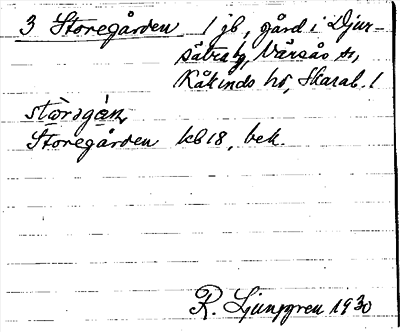 3 Storegården 1 jb, gård i Djur-
sätra by, Värsås sn,
Kåkinds hd, Skarab. l
Storegården kb 18, bek.
R. Ljunggren 1930